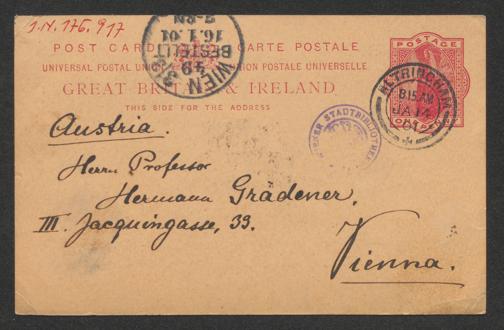 I.N. 176.917
POST CARD CARTE POSTALE
UNIVERSAL POSTAL UNION UNION POSTALE UNIVERSELLE
GREAT BRITAIN & IRELAND
THIS SIDE FOR THE ADDRESS
POSTAGE
WIEN
BESTELLT
16.1.01
8.15AM
JA 14
01
WIENER STADTBIBLIOTHEK
Austria.
Herrn Professor
Hermann Gradener,
III. Jacquingasse, 33.
Vienna.